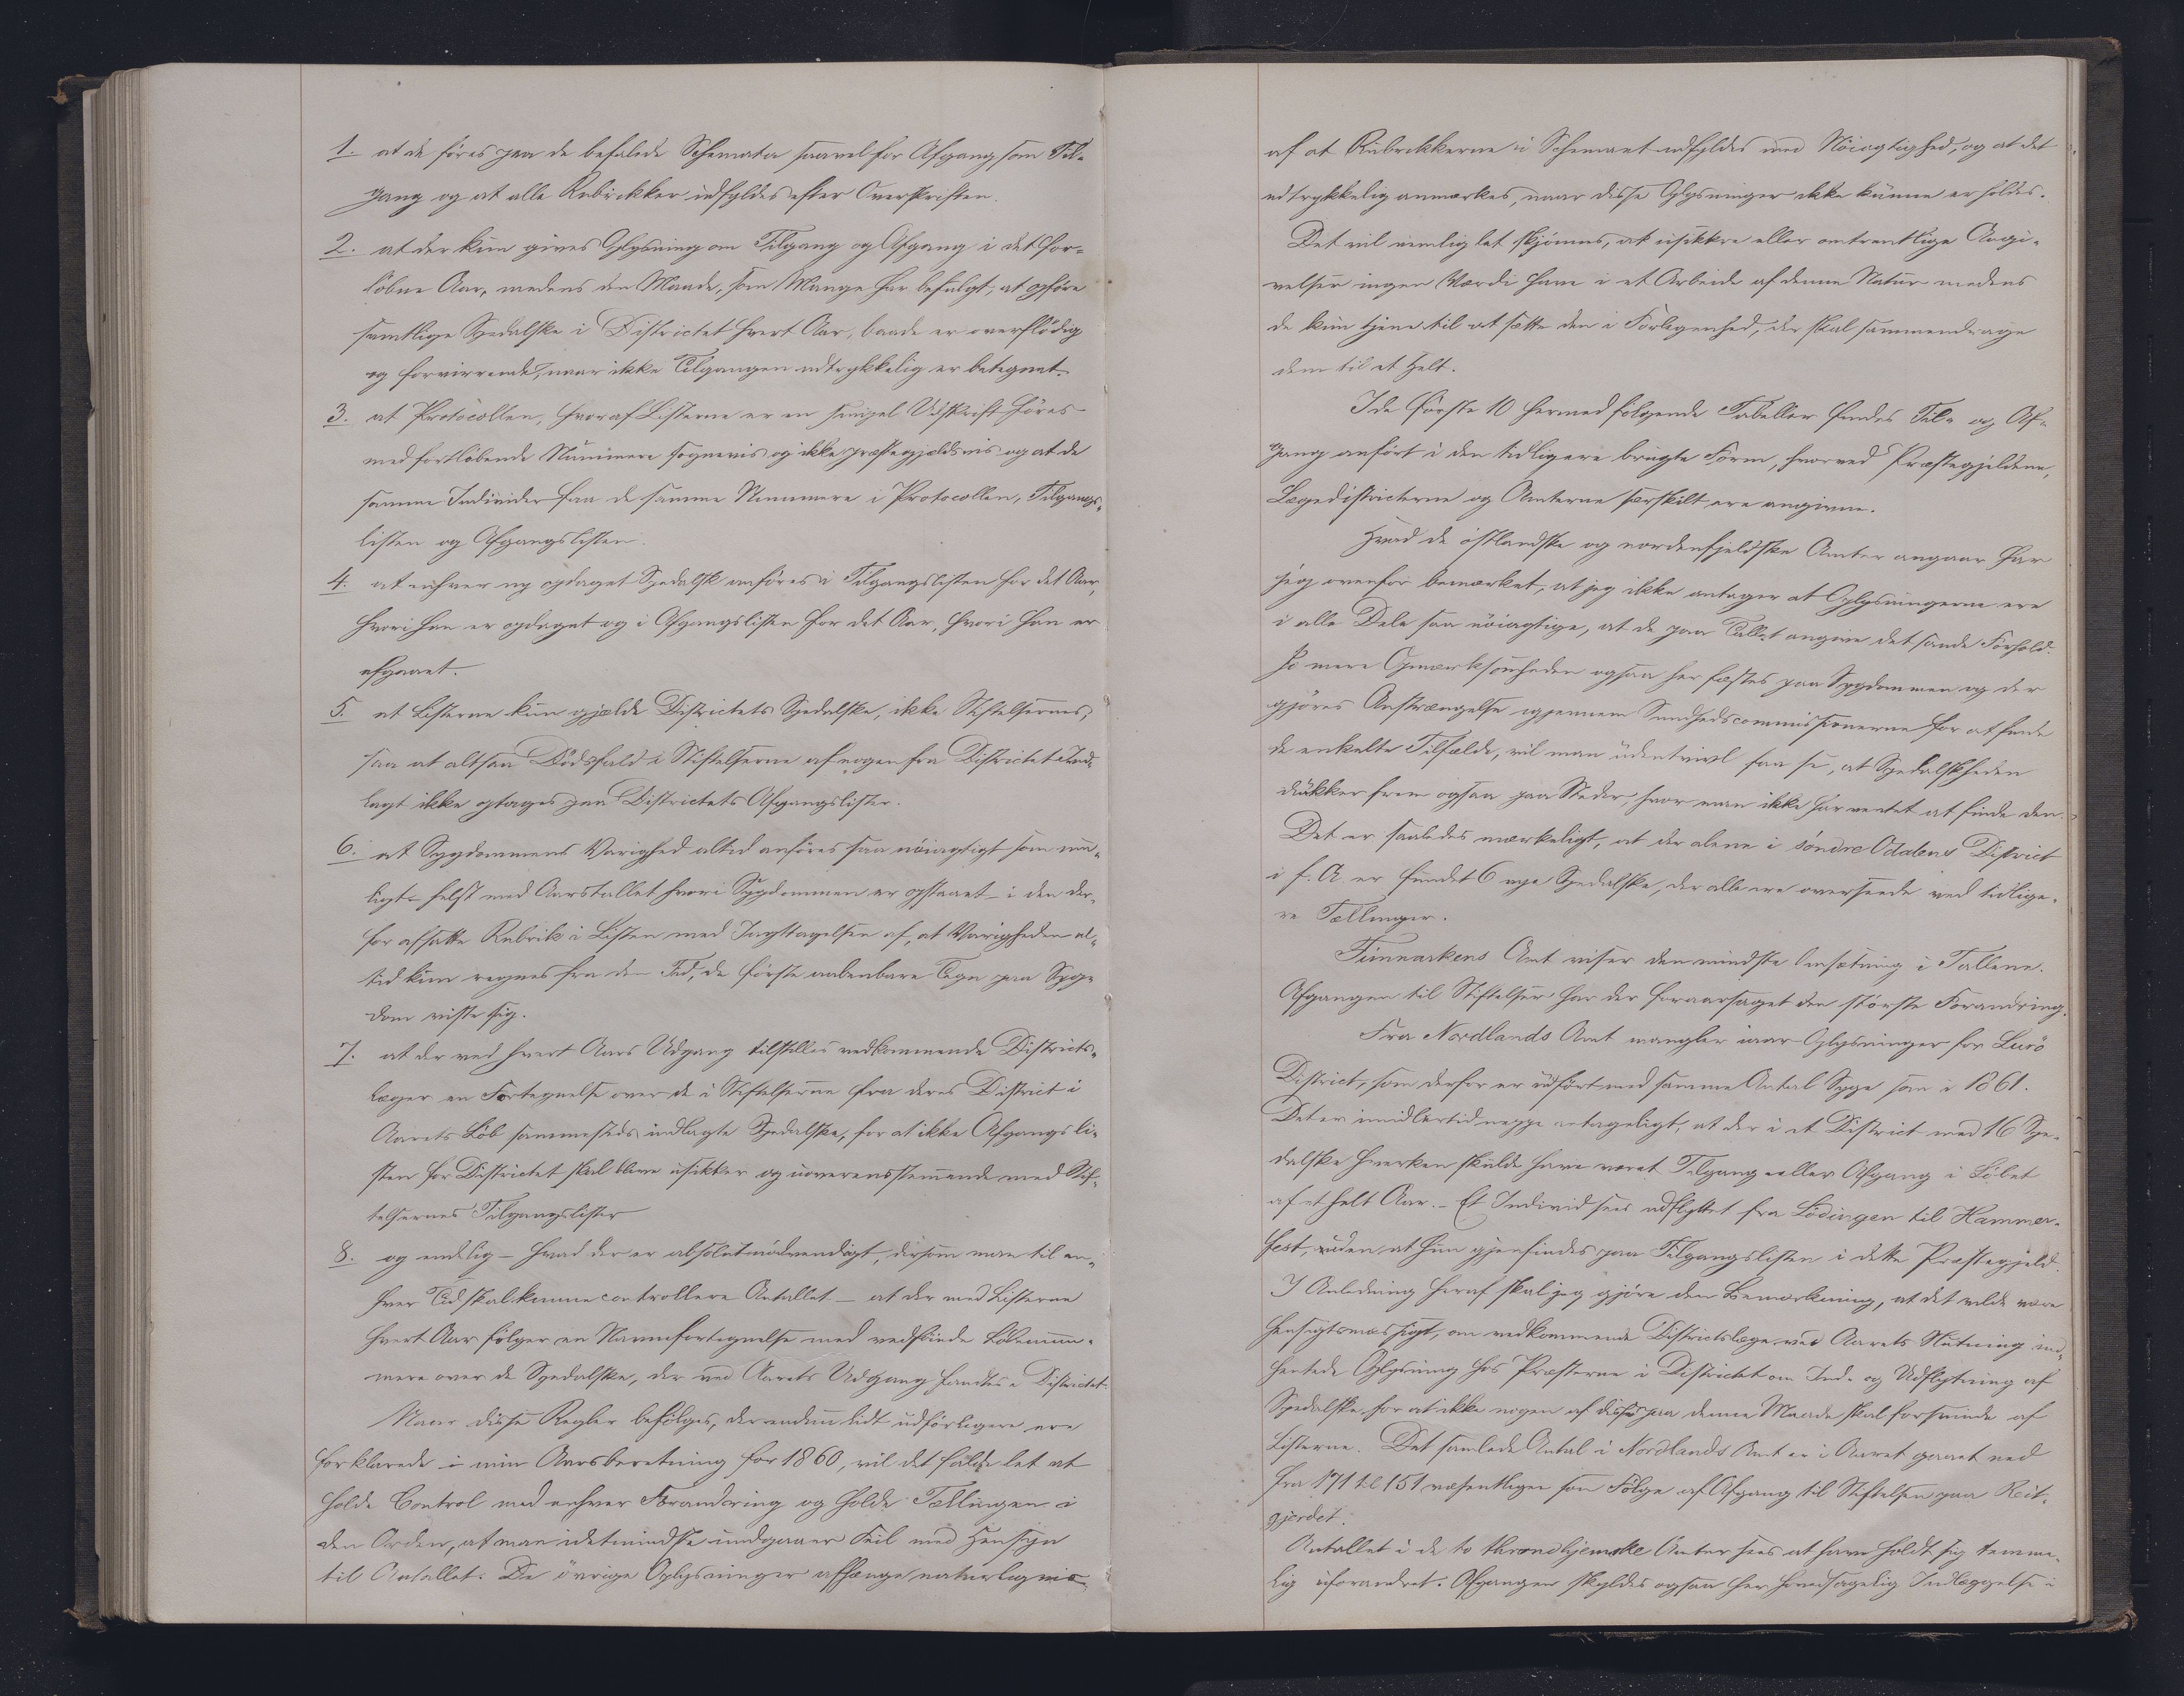 1. at de føres paa de befalede Schemata saavel for Afgang som Til-
gang og at alle Rubrikker udfyldes efter Overskriften.
2. at der kun gives Oplysning om Tilgang og Afgang i det for-
løbne Aar, medens den Maade, som Mange har befulgt, at opføre
samtlige Spedalske i Districtet hvert Aar, baade er overflødig
og forvirrende, naar ikke Tilgangen udtrykkelig er betegnet.
3. at Protocollen, hvoraf Listerne er en simpel Udskrift føres
med fortløbende Nummere sognevis og ikke præstegjeldsvis og at de
samme Individer faa de samme Nummere i Protocollen, Tilgangs-
listen og Afgangslisten.
4. at enhver ny opdaget Spedalsk anføres i Tilgangslisten for det Aar,
hvori han er opdaget og i Afgangslisten for det Aar, hvori han er
afgaaet.
5. at Listerne kun gjælde Districtets Spedalske, ikke Stiftelsernes,
saa at altsaa Dødsfald i Stiftelserne af nogen fra Districtet Ind-
lagt ikke optages paa Districtets Afgangslister.
6. at Sygdommens Varighed altid anføres saa nøiagtigt som mu-
ligt - helst med Aarstallet hvori Sygdommen er opstaaet - i den der-
for afsatte Rubrik i Listen med Iagttagelsen af, at Varigheden al-
tid kun regnes fra den Tid, de første aabenbare Tegn paa Syg-
dom viste sig.
7. at der ved hvert Aars Udgang tilstilles vedkommende Districts-
læger en Fortegnelse over de i Stiftelserne fra deres District i
Aarets Løb sammesteds indlagte Spedalske, for at ikke Afgangsli-
sten for Districtet skal blive usikker og uoverensstemmende med Stif-
telsernes Tilgangslister
8. og endelig - hvad der er absolut nødvendigt, dersom man til en-
hver Tid skal kunne controllere Antallet - at der med Listerne
hvert Aar følger en Navnefortegnelse med vedføiede Løbenum-
mere over de Spedalske, der ved Aarets Udgang fandtes i Districtet.
Naar disse Regler befølges, der endnu lidt udførligere ere
forklarede i min Aarsberetning for 1860, vil det falde let at
holde Control med enhver Forandring og holde Tællingen i
den Orden, at man idetmindste undgaaer Feil med Hensyn
til Antallet. De øvrige Oplysninger afhænge naturligvis
af at Rubrikkerne i Schemaet udfyldes med Nøiagtighed, og at det
udtrykkelig anmærkes, naar disse Oplysninger ikke kunne erholdes.
Det vil nemlig let skjønnes, at usikkre eller omtrentlige Angi-
velser ingen Værdi have i et Arbeide af denne Natur medens
de kun tjene til at sætte den i Forlegenhed, der skal sammendrage
dem til et Helt.
I de første 10 hermed følgende Tabeller findes Til- og Af-
gang anført i den tidligere brugte Form, hvorved Præstegjeldene,
Lægedistricterne og Amterne særskilt ere angivne.
Hvad de østlandske og nordenfjeldske Amter angaar har
jeg ovenfor bemærket, at jeg ikke antager at Oplysningerne ere
i alle Dele saa nøiagtige, at de paa Tallet angive det sande Forhold.
Jo mere Opmærksomheden ogsaa her fæstes paa Sygdommen og der
gjøres Anstrængelse igjennem Sundhedscommissionerne for at finde
de enkelte Tilfælde, vil man udentvivl faa se, at Spedalskheden
dukker frem ogsaa paa Steder, hvor man ikke har ventet at finde den.
Det er saaledes mærkeligt, at der alene i søndre Odalens District
i f. A. er fundet 6 nye Spedalske, der alle ere overseede ved tidlige-
re Tællinger.
Finmarkens Amt viser den mindste Omsætning i Tallene.
Afgangen til Stiftelser har der foraarsaget den største Forandring.
Fra Nordlands Amt mangler iaar Oplysninger for Lurö
District, som derfor er udført med samme Antal Syge som i 1861.
Det er imidlertid neppe antageligt, at der i et District med 16 Spe-
dalske hverken skulde have været Tilgang eller Afgang i Løbet
af et helt Aar. - Et Individ sees udflyttet fra Lødingen til Hammer-
fest, uden at hun gjenfindes paa Tilgangslisten i dette Præstegjeld.
I Anledning heraf skal jeg gjøre den Bemærkning, at det vilde være
hensigtsmæssigt, om vedkommende Districtslæge ved Aarets Slutning ind-
hentede Oplysning hos Præsterne i Districtet om Ind- og Udflytning af
Spedalske, for at ikke nogen af disse paa denne Maade skal forsvinde af
Listerne. Det samlede Antal i Nordlands Amt er i Aaret gaaet ned
fra 171 til 151 væsentligen som Følge af Afgang til Stiftelsen paa Reit-
gjerdet.
Antallet i de to throndhjemske Amter sees at have holdt sig temme-
lig uforandret. Afgangen skyldes ogsaa her hovedsagelig Indlæggelse i